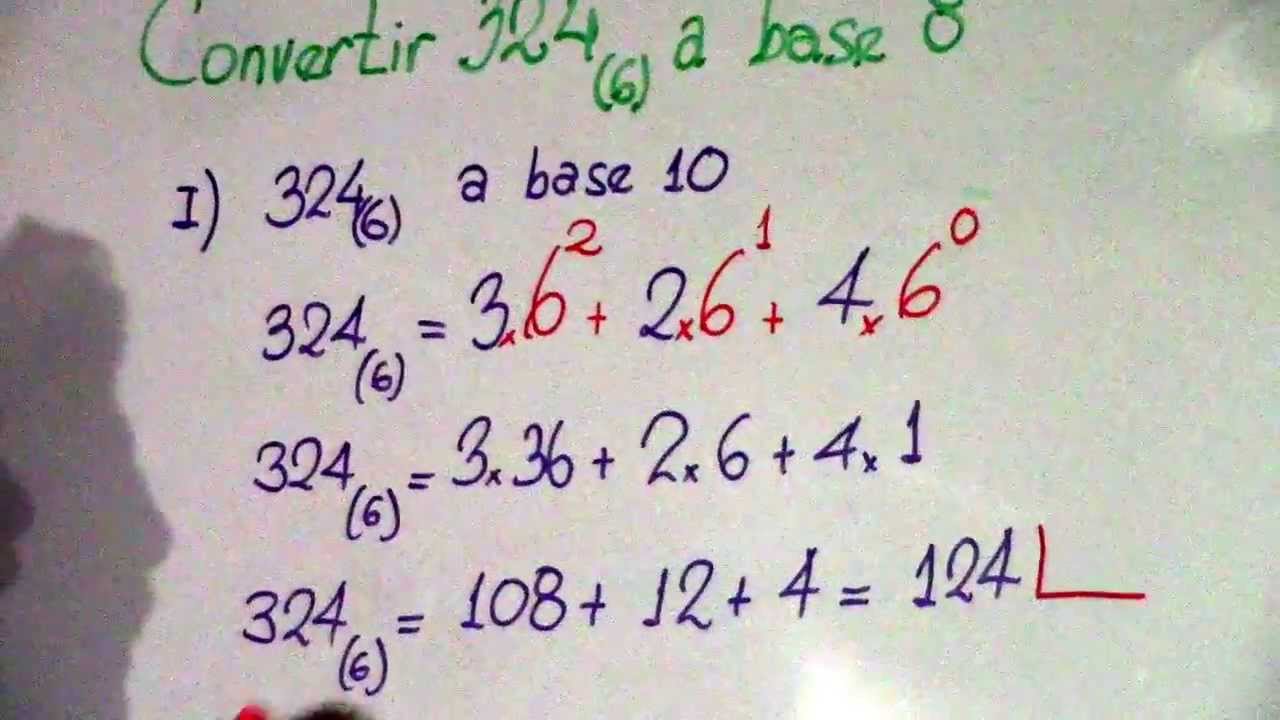 Convertir 324(6) a base 8
I) 324(6) a base 10
324(6) = 3x6² + 2x6¹ + 4x6⁰
324(6) = 3x36 + 2x6 + 4x1
324(6) = 108 + 12 + 4 = 124